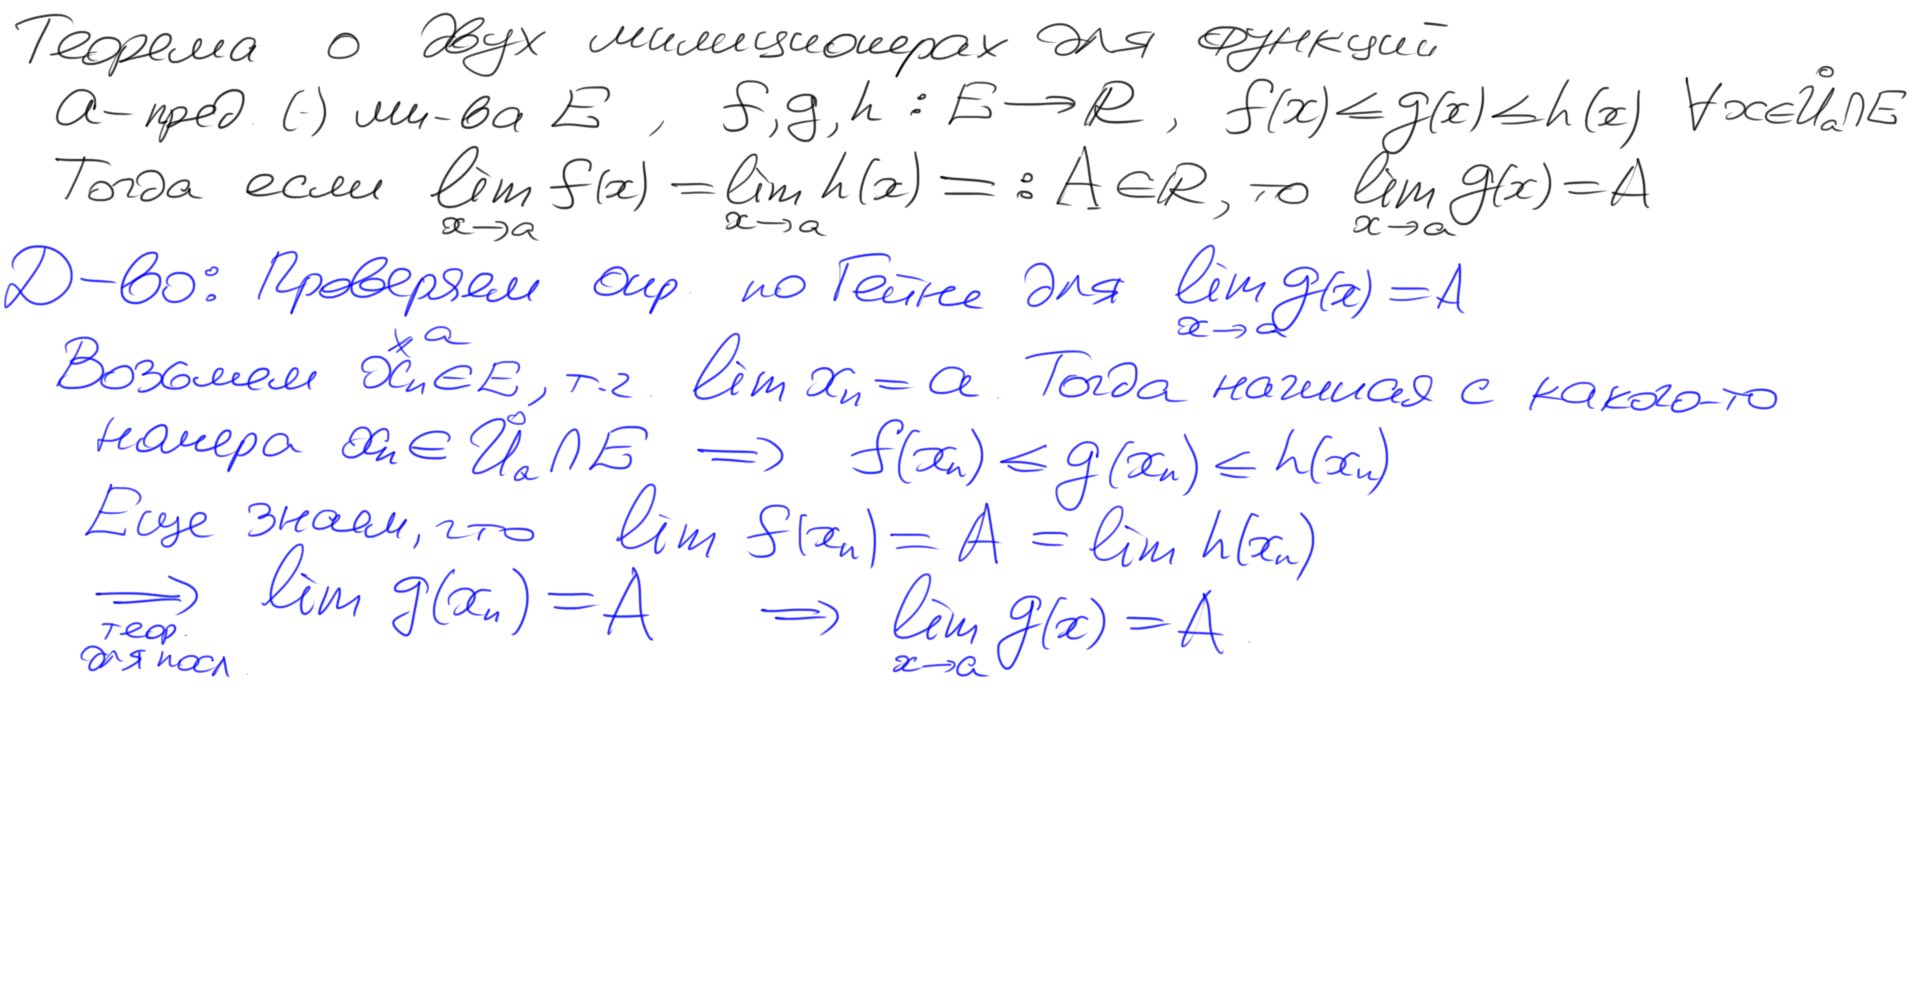 Теорема о двух милиционерах для функций
a - пред. (·) мн-ва E, f, g, h : E → ℝ, f(x) ≤ g(x) ≤ h(x) ∀x∈Ůₐ∩E
Тогда если lim_{x→a} f(x) = lim_{x→a} h(x) =: A ∈ ℝ, то lim_{x→a} g(x) = A
Д-во: Проверяем опр. по Гейне для lim_{x→a} g(x) = A
Возьмем a ≠ xₙ ∈ E, т.ч. lim xₙ = a. Тогда начиная с какого-то
номера xₙ ∈ Ůₐ ∩ E ⟹ f(xₙ) ≤ g(xₙ) ≤ h(xₙ)
Еще знаем, что lim f(xₙ) = A = lim h(xₙ)
⟹ lim g(xₙ) = A ⟹ lim_{x→a} g(x) = A
теор.
для посл.